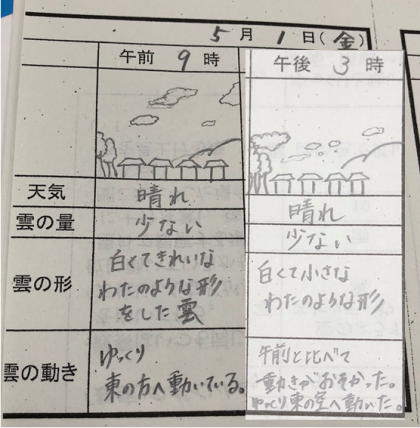 5月1日(金)
午前 9時
午後 3時
天気
晴れ
晴れ
雲の量
少ない
少ない
雲の形
白くてきれいな
わたのような形
をした雲
白くて小さな
わたのような形
雲の動き
ゆっくり
東の方へ動いている。
午前と比べて
動きがおそかった。
ゆっくり東の空へ動いた。